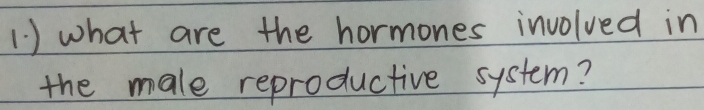 1.) what are the hormones involved in
the male reproductive system?